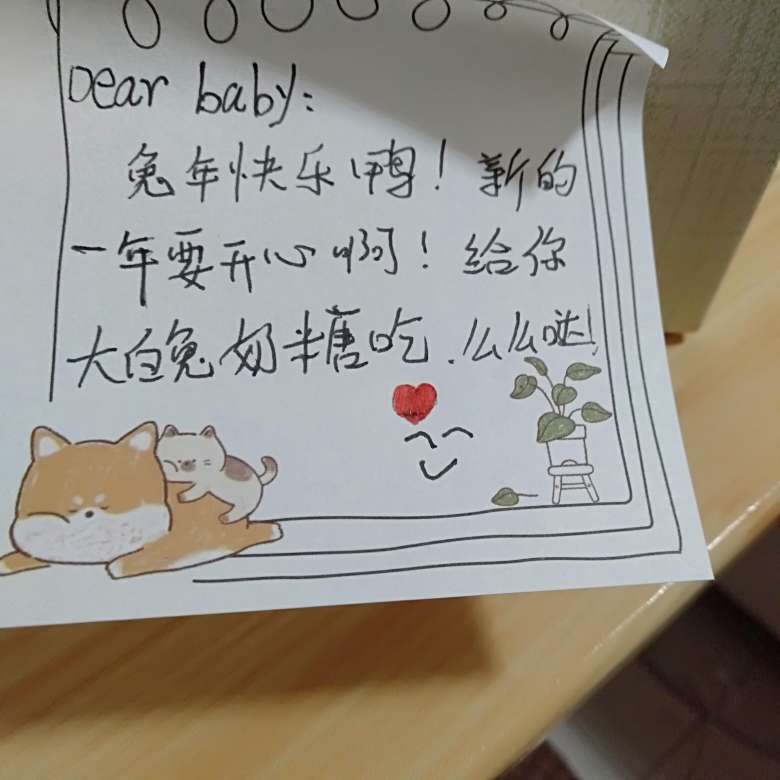 Dear baby:
兔年快乐鸭！新的
一年要开心啊！给你
大白兔奶糖吃.么么哒!